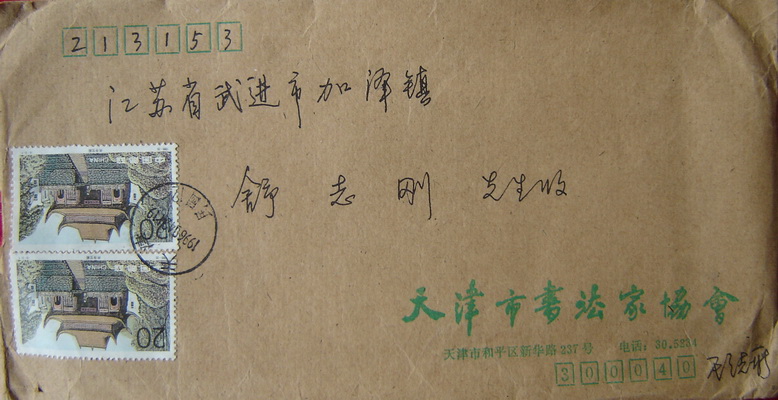 213153
江苏省武进市加泽镇
舒志刚 先生收
中国邮政 CHINA
20
中国邮政 CHINA
20
天津市书法家协會
天津市和平区新华路237号 电话：30.5234
300040